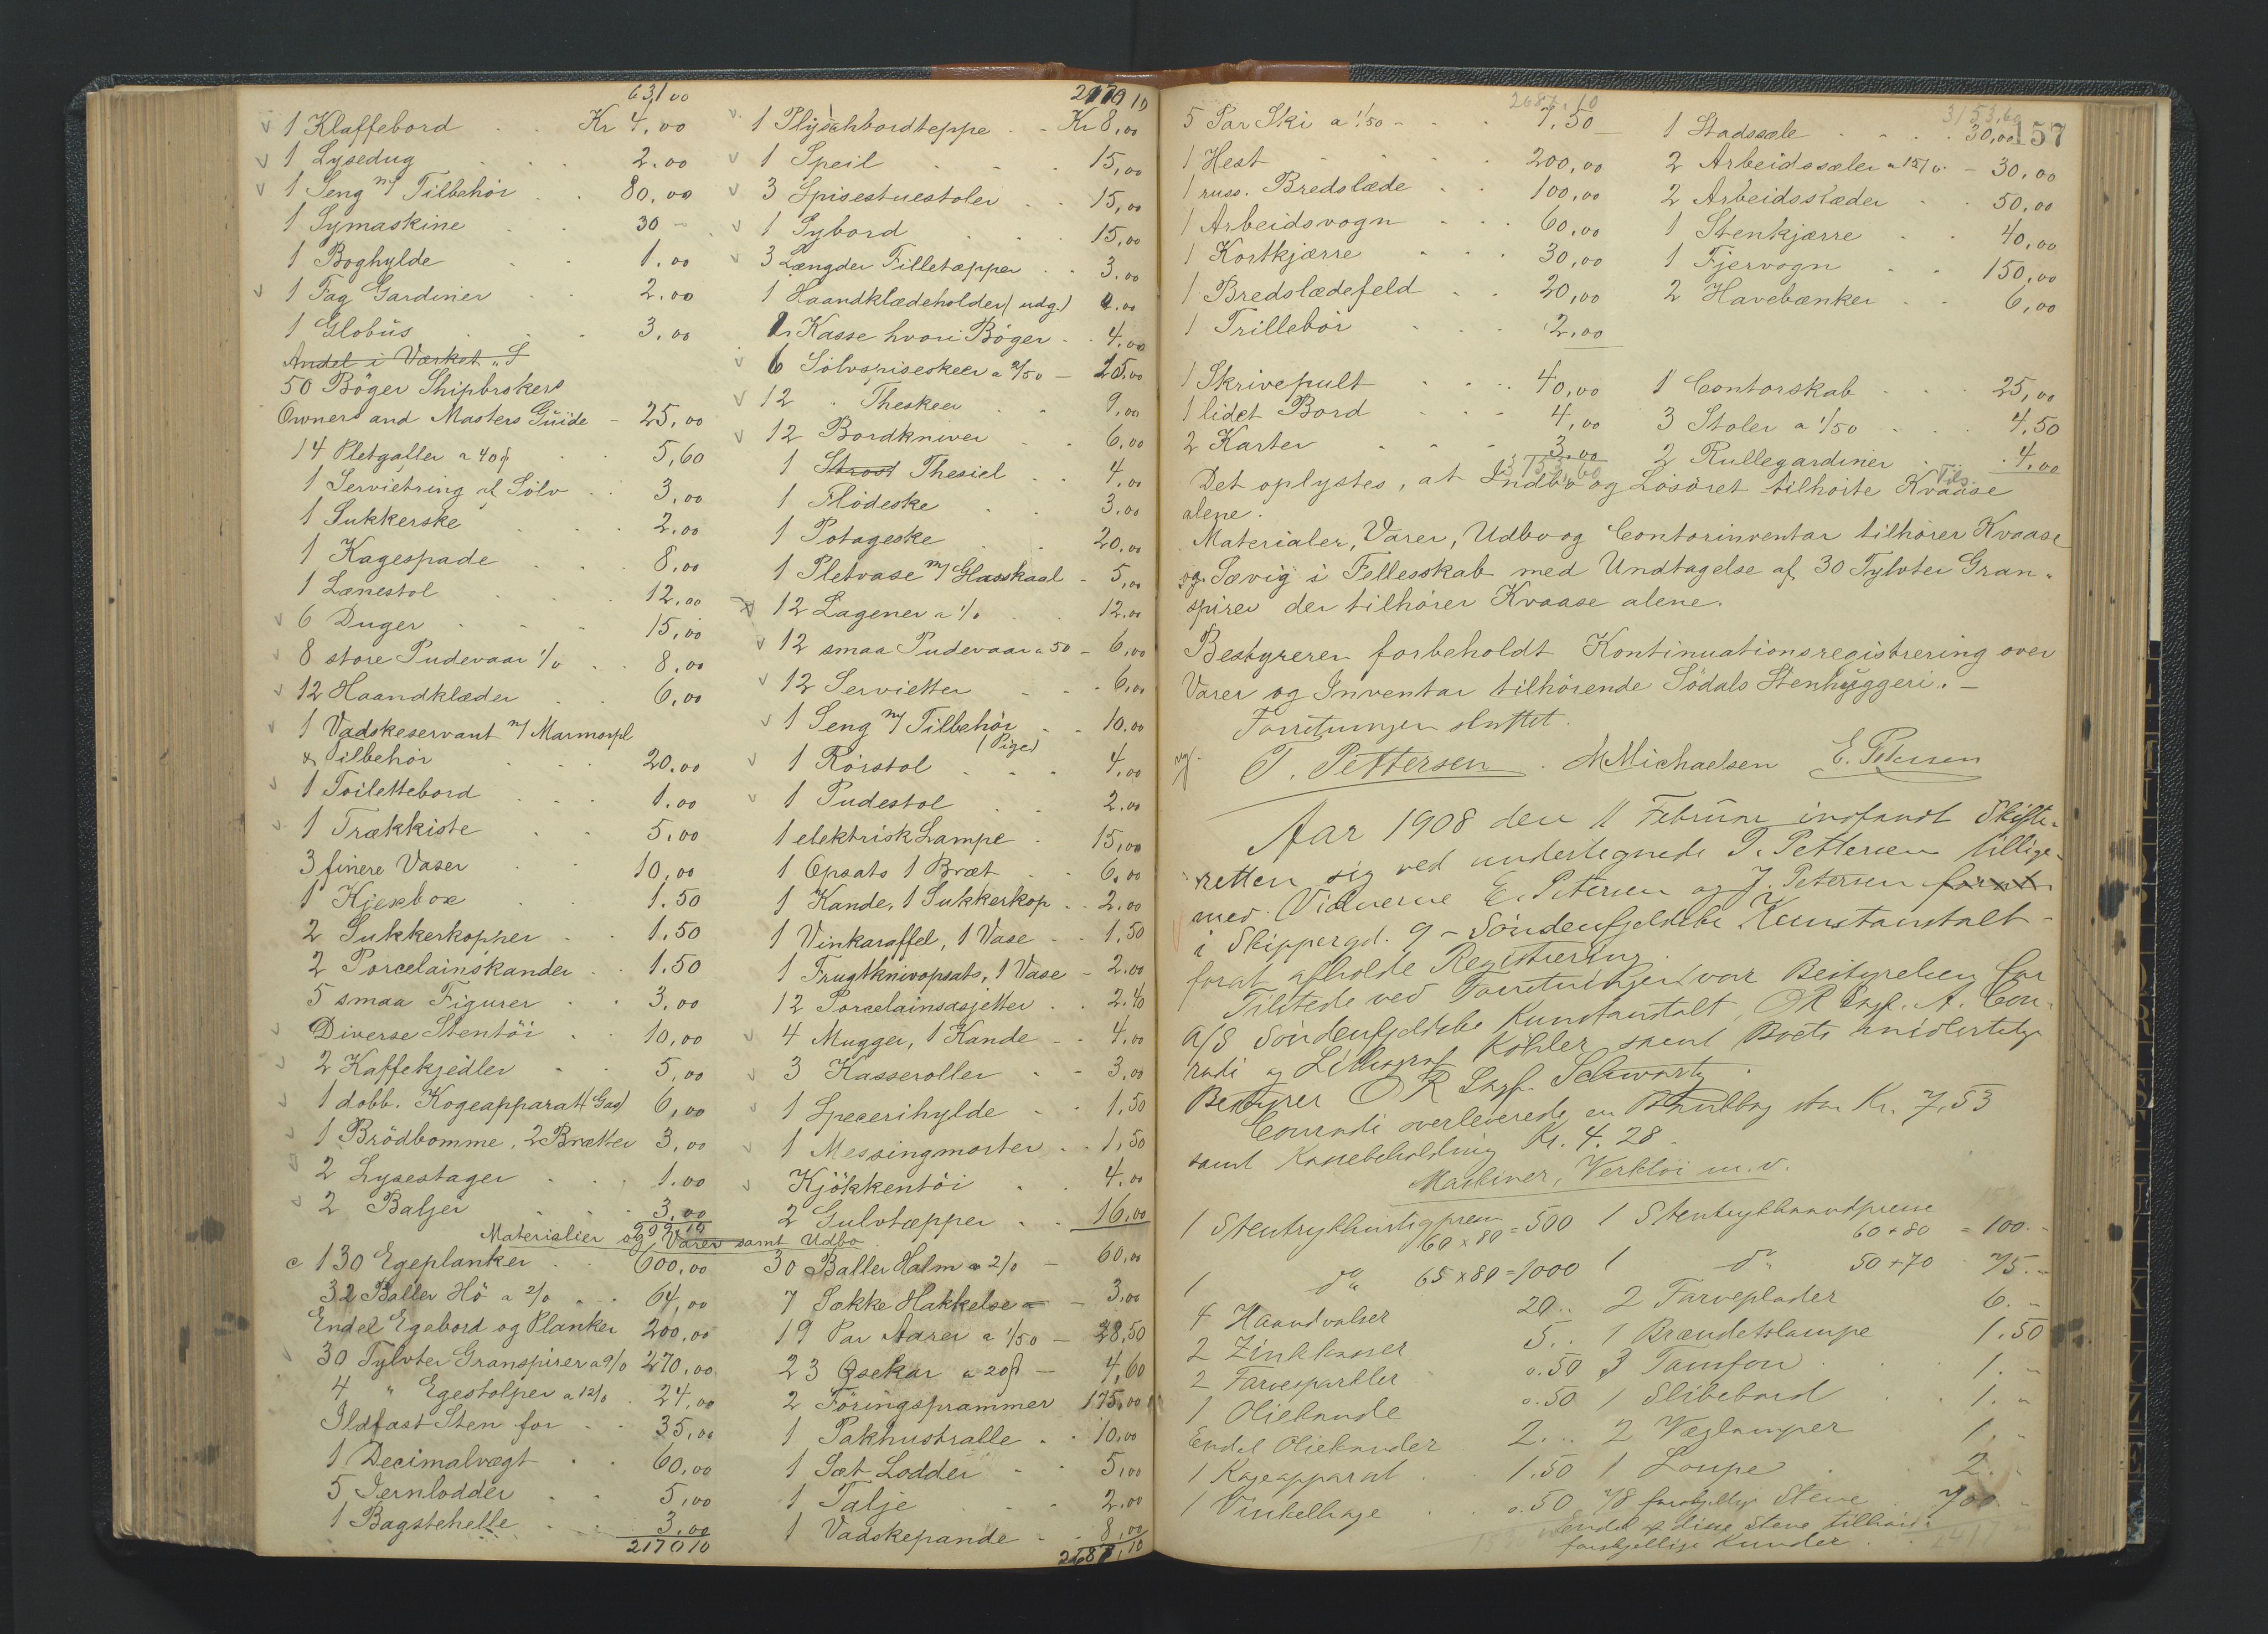 631 00
1 Klaffebord Kr 4,00
1 Lysedug 2.00
1 Seng m/ Tilbehör 80,00
1 Symaskine 30 -
1 Boghylde 1.00
1 Fag Gardiner 2.00
1 Globüs 3,00
Andel i Værket "S
50 Böger Shipbrokers
Owners and Masters Güide - 25,00
14 Pletgafler a 40 5,60
1 Servietring af Sölv 3,00
1 Sukkerske 2.00
1 Kagespade 8,00
1 Lænestol 12,00
6 Duger 15,00
8 store Pudevaar 1/0 8,00
12 Haandklæder 6,00
1 Vadskeservant m/ Marmorpl
& Tilbehör 20.00
1 Toilettebord 1.00
1 Trækkiste 5,00
3 finere Vaser 10,00
1 Kjexbox 1.50
2 Sukkerkopper 1.50
2 Porcelainskander 1.50
5 smaa Figurer 3,00
Diverse Stentöi 10,00
2 Kaffekjedler 5,00
1 dobb. Kogeapparat (Gas) 6,00
1 Brödbomme, 2 Brætter 3,00
2 Lysestager 1.00
2 Baljer 3,00
Materialier og Varer samt Udbo
130 Egeplanker 600,00
32 Baller Hö a 2/0 64,00
Endel Egebord og Planker 200,00
30 Tylvter Granspirer a 9/0 270,00
4 " Egestolper a 12/0 24,00
Ildfast Sten for 35,00
1 Decimalvægt 60,00
5 Jernlodder 5,00
1 Bagstehelle 3,00
2170 10
2170 10
1 Plyschbordteppe Kr 8,00
1 Speil 15,00
3 Spisestuestoler 15,00
1 Sybord 15,00
3 Længder Filletæpper 3.00
1 Haandklædeholder (udg.)
1 Kasse hvori Böger 4.00
6 Sölvspiseskeer a 2/50 - 15.00
12 " Theskeer 9,00
12 Bordkniver 6,00
1 Thesiel 4.00
1 Flödeske 3.00
1 Potageske 20,00
1 Pletvase m/ Glasskaal - 5,00
12 Lagener a 1/0 12.00
12 smaa Pudevaar a 50 - 6,00
12 Servietter 6,00
1 Seng m/ Tilbehör (Pige) 10.00
1 Rörstol 4,00
1 Pudestol 2.00
1 elektrisk Lampe 15,00
1 Opsats 1 Bræt 6,00
1 Kande, 1 Sukkerkop 2.00
1 Vinkaraffel, 1 Vase 1,50
1 Frugtknivopsats, 1 Vase - 2.00
12 Porcelainsasjetter 2.40
4 Mugger, 1 Kande 4,00
3 Kasseroller 3,00
1 Specerihylde 1,50
1 Messingmorter 1,50
Kjökkentöi 4.00
2 Gulvtæpper 16,00
30 Baller Halm a 2/0 - 60,00
7 Sække Hakkelse - 3,00
19 Par Aarer a 1/50 - 28,50
23 Øsekar a 20 - 4,60
2 Föringsprammer 175,00
1 Pakhustralle 10,00
1 Sæt Lodder 5,00
1 Talje 2.00
1 Vadskepande 8,00
2687,10
157
2687,10
5 Par Ski a 1/50 7,50
1 Hest 200,00
1 russ. Bredslæde 100,00
1 Arbeidsvogn 60,00
1 Kortkjærre 30,00
1 Bredslædefeld 20,00
1 Trillebör 2,00
1 Skrivepult 40,00
1 lidet Bord 4,00
2 Karter 3,00
3153,60
1 Stadssæle 30,00
2 Arbeidssæler a 15/0 - 30,00
2 Arbeidsslæder 50,00
1 Stenkjærre 40,00
1 Fjervogn 150,00
2 Havebænker 6,00
1 Contorskab 25,00
3 Stoler a 1/50 4,50
2 Rullegardiner 4,00
Det oplystes, at Indbo og Lösöret tilhörte Kvaase
alene.
Materialer, Varer, Udbo og Contorinventar tilhörer Kvaase
og Sævig i Fellesskab med Undtagelse af 30 Tylvter Gran-
spirer der tilhörer Kvaase alene.
Bestyrerer forbeholdt Kontinuationsregistrering over
Varer og Inventar tilhörende Södals Stenhüggeri. -
Forretningen sluttet.
T. Pettersen. M Michaelsen E. Petersen
Aar 1908 den 11 Februar indfandt Skifte-
retten sig ved undertegnede T. Pettersen tillige-
med Vidnerne E. Petersen og J. Petersen
i Skippergd. 9 - Söndenfjeldske Kunstanstalt -
forat afholde Registrering.
Tilstede ved Forretningen var Bestyrelsen for
A/S Söndenfjeldske Kunstanstalt, OR Sagf. A. Con-
radi og Lithograf Köhler samt Boets midlertidige
Bestyrer OR Sagf. Schwartz.
Conradi overleverede en Bankbog stor Kr. 7,53
samt Kassebeholdning Kr. 4.28.
Maskiner, Verktöi m.v.
1 Stentrykhurtigpresse 60 x 80 = 500
1 do 65 x 80 = 1000
4 Haandvalser 20..
2 Zinkkasser 5..
2 Farvespartler 0.50
1 Oliekande 0.50
Endel Oliekander 2...
1 Kogeapparat 1.50
1 Vinkelhage 0.50
1 Stentrykhaandpresse 60 + 80 = 100.-
1 do 50 + 70 75.-
2 Farveplader 6.-
1 Brændetslampe 1.50
3 1.-
1 Slibebord 1.-
2 Væglamper 1.-
1 Loupe 2.-
78 forskjellige Stene 700.-
Endel af disse Stene tilhörer
forskjellige Kunder.